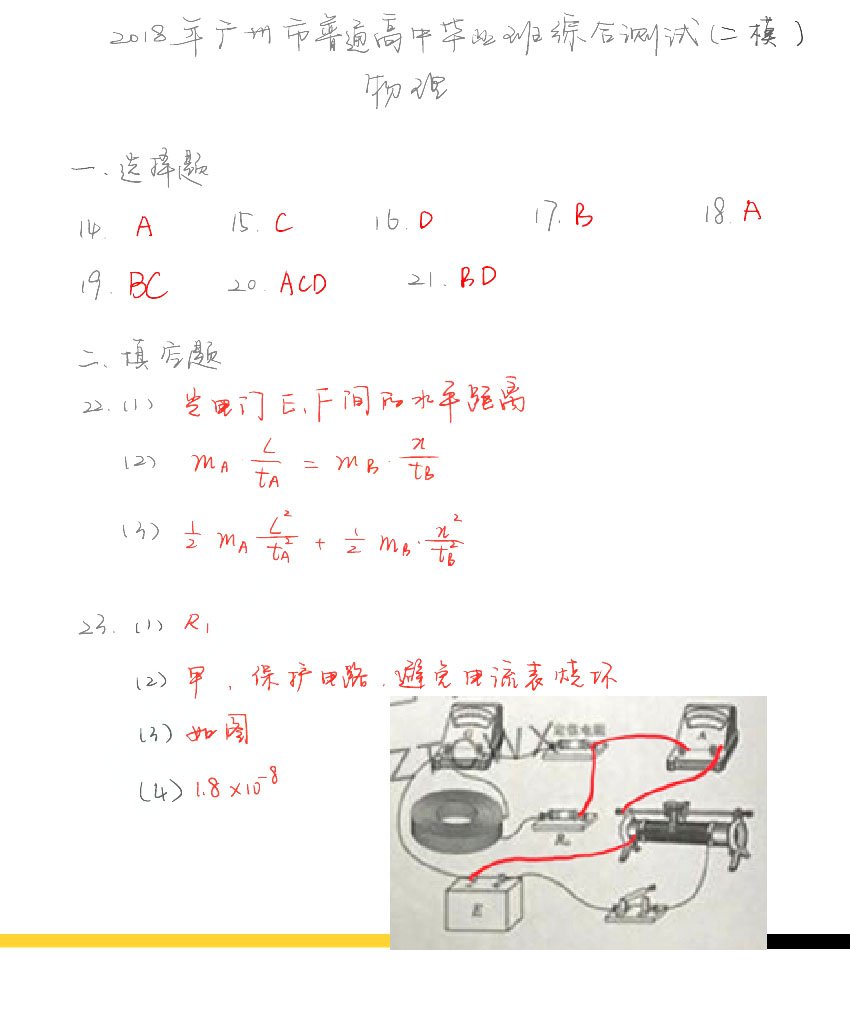 2018年广州市普通高中毕业班综合测试(二模)
物理
一、选择题
14. A 15. C 16. D 17. B 18. A
19. BC 20. ACD 21. BD
二、填空题
22.(1) 光电门E、F间的水平距离
(2) mA·L/tA = mB·x/tB
(3) 1/2 mA L²/tA² + 1/2 mB·x²/tB²
23.(1) R1
(2) 甲，保护电路，避免电流表烧坏
(3) 如图
(4) 1.8×10⁻⁸
定值电阻
G
A
E